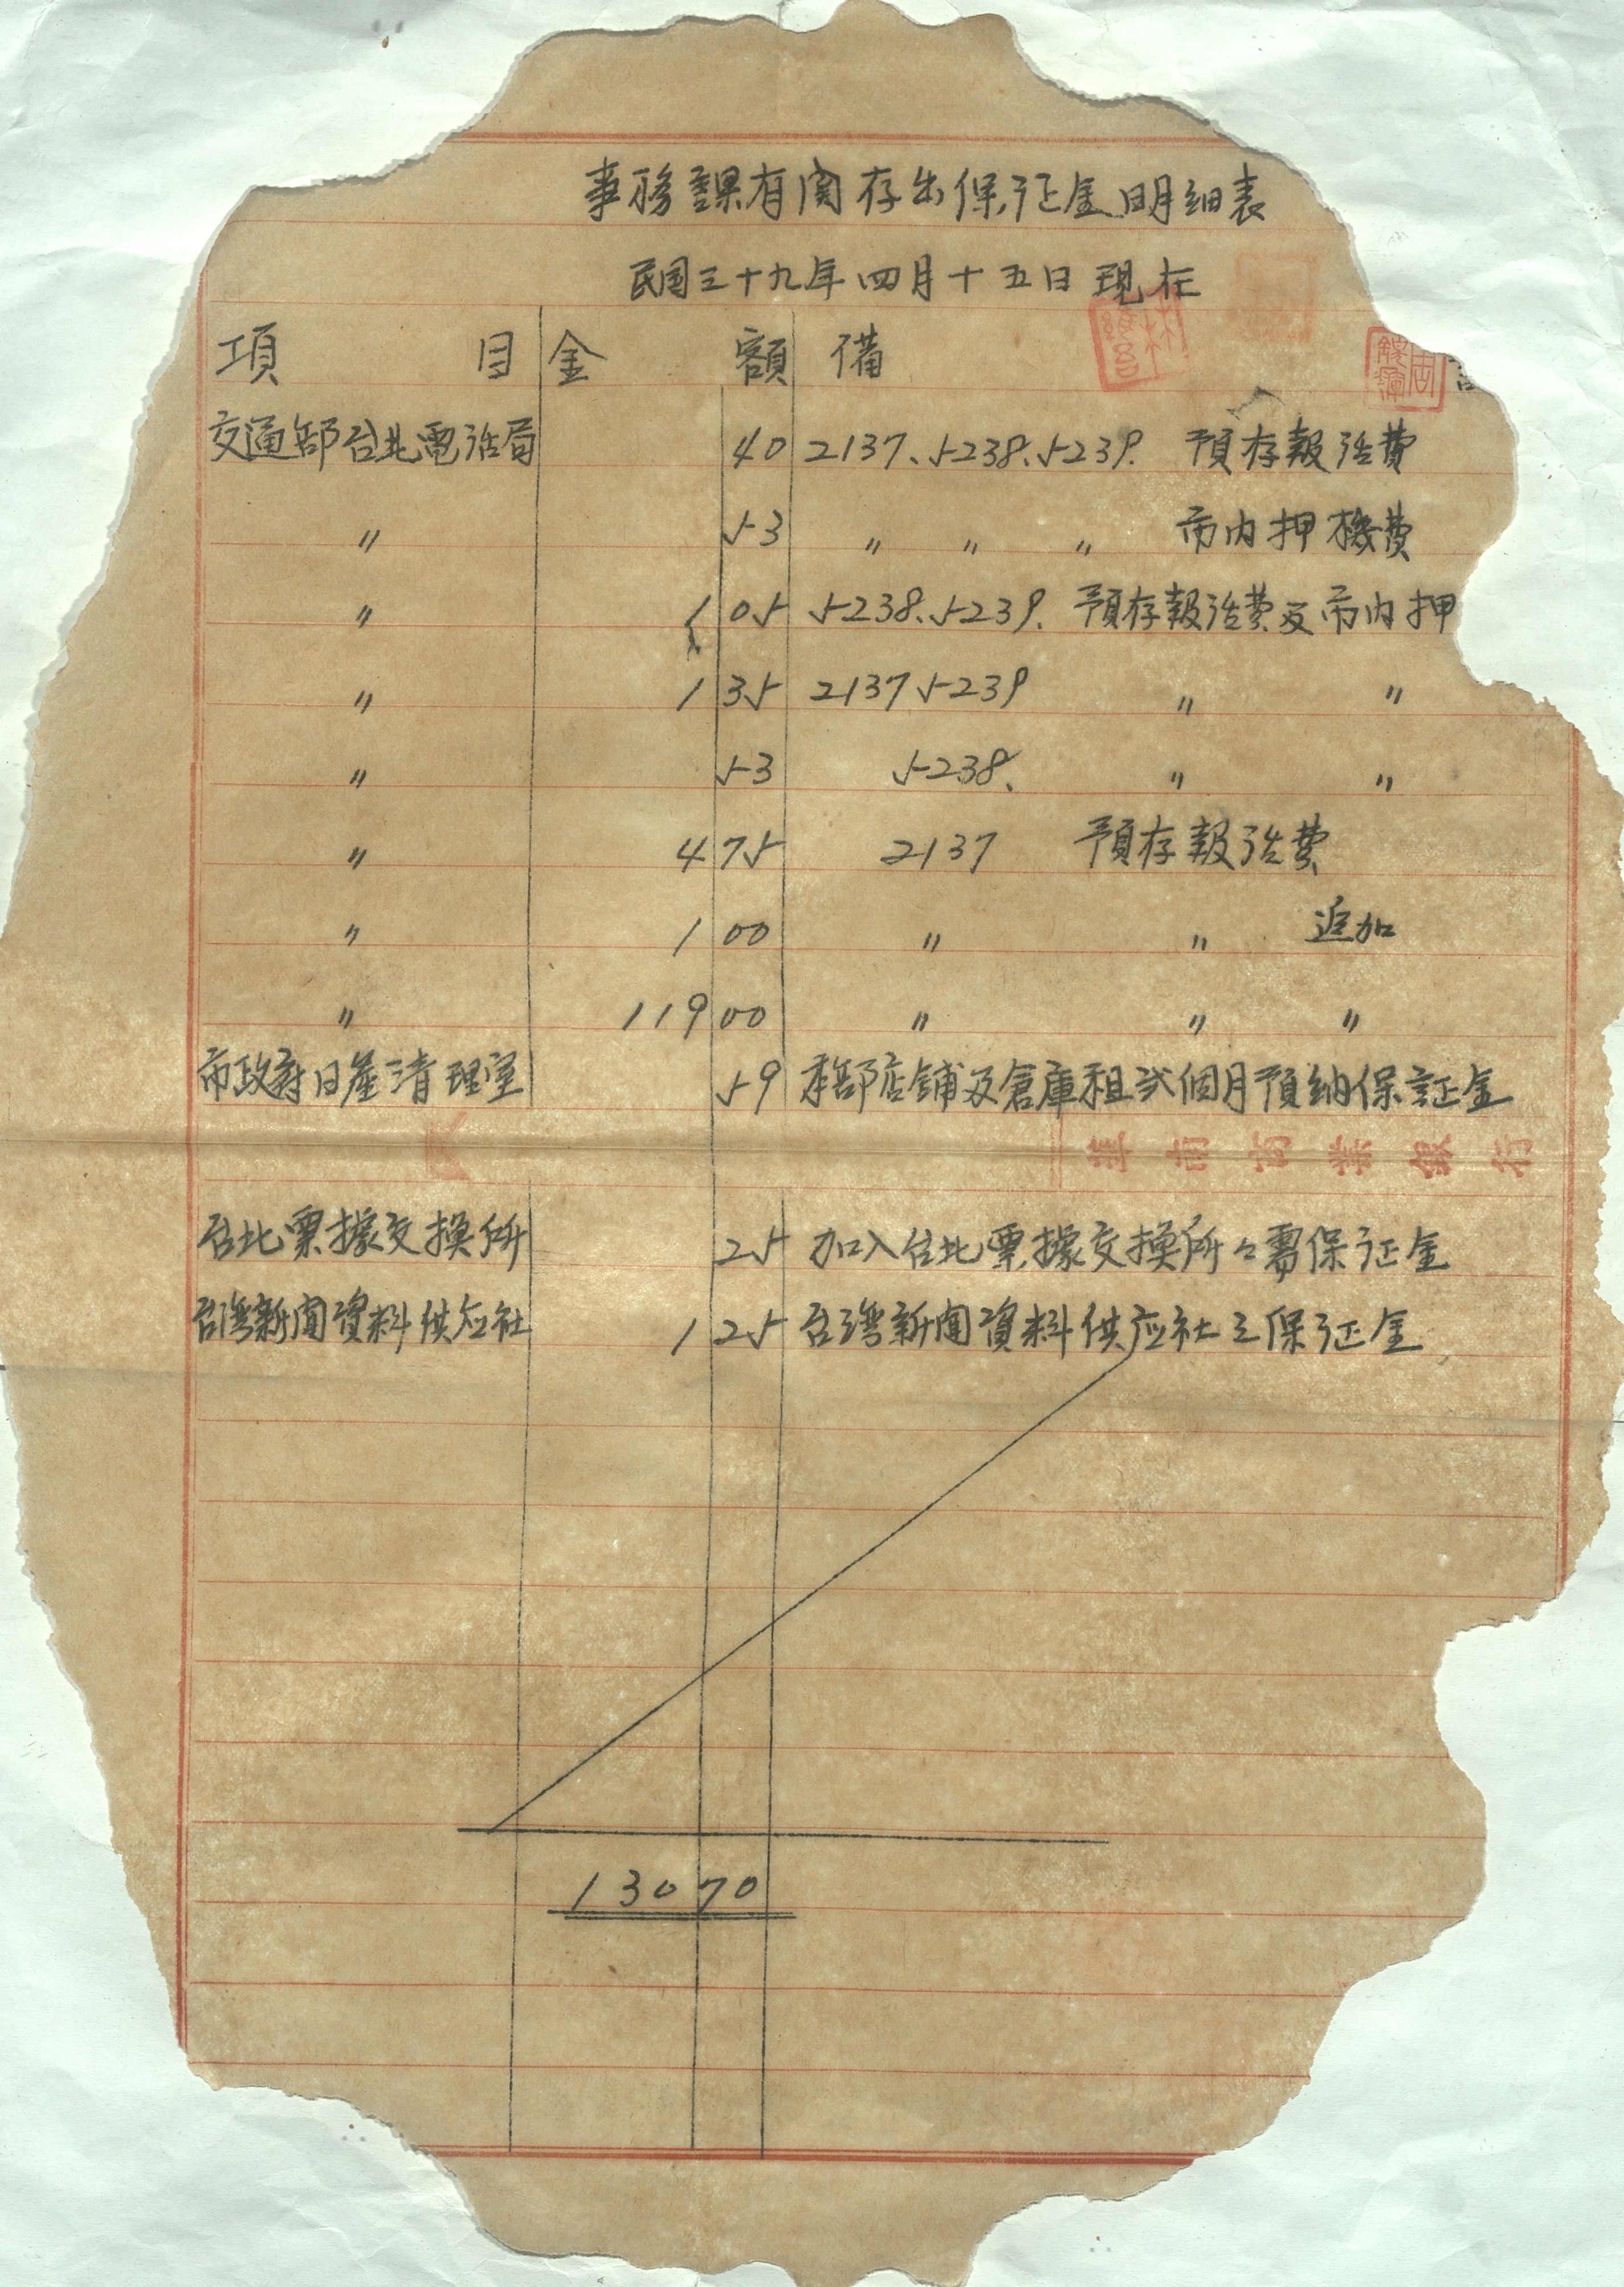 事務課有関存出保証金明細表
民国三十九年四月十五日現在
項 目 金 額 備
交通部台北電話局 40 2137、5238、5239. 預存報話費
〃 53 〃 〃 〃 市内押機費
〃 1 05 5238、5239. 預存報話費及市内押
〃 1 35 2137 5239 〃 〃
〃 53 5238、 〃 〃
〃 4 75 2137 預存報話費
〃 1 00 〃 〃 追加
〃 119 00 〃 〃 〃
市政府日產清理室 59 本部店舗及倉庫租弍個月預納保証金
華南商業銀行
台北票據交換所 25 加入台北票據交換所々需保证金
台湾新聞資料供应社 1 25 台湾新聞資料供应社之保证金
130 70